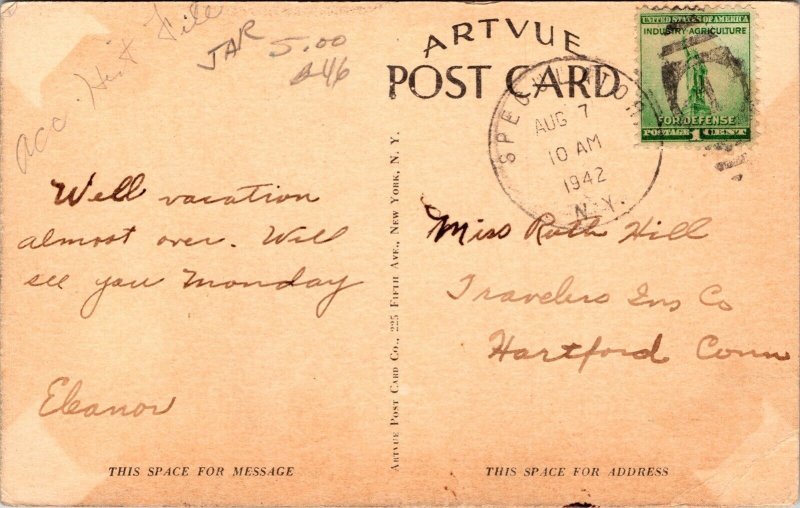 acc. Hist File
JAR 5.00
A46
ARTVUE
POST CARD
SPECULATOR
AUG 7
10 AM
1942
N.Y.
UNITED STATES OF AMERICA
INDUSTRY-AGRICULTURE
FOR DEFENSE
POSTAGE 1 CENT
Well vacation
almost over. Will
see you Monday
Eleanor
THIS SPACE FOR MESSAGE
ARTVUE POST CARD CO., 225 FIFTH AVE., NEW YORK, N. Y.
Miss Ruth Hill
Travelers Ins Co
Hartford Conn
THIS SPACE FOR ADDRESS